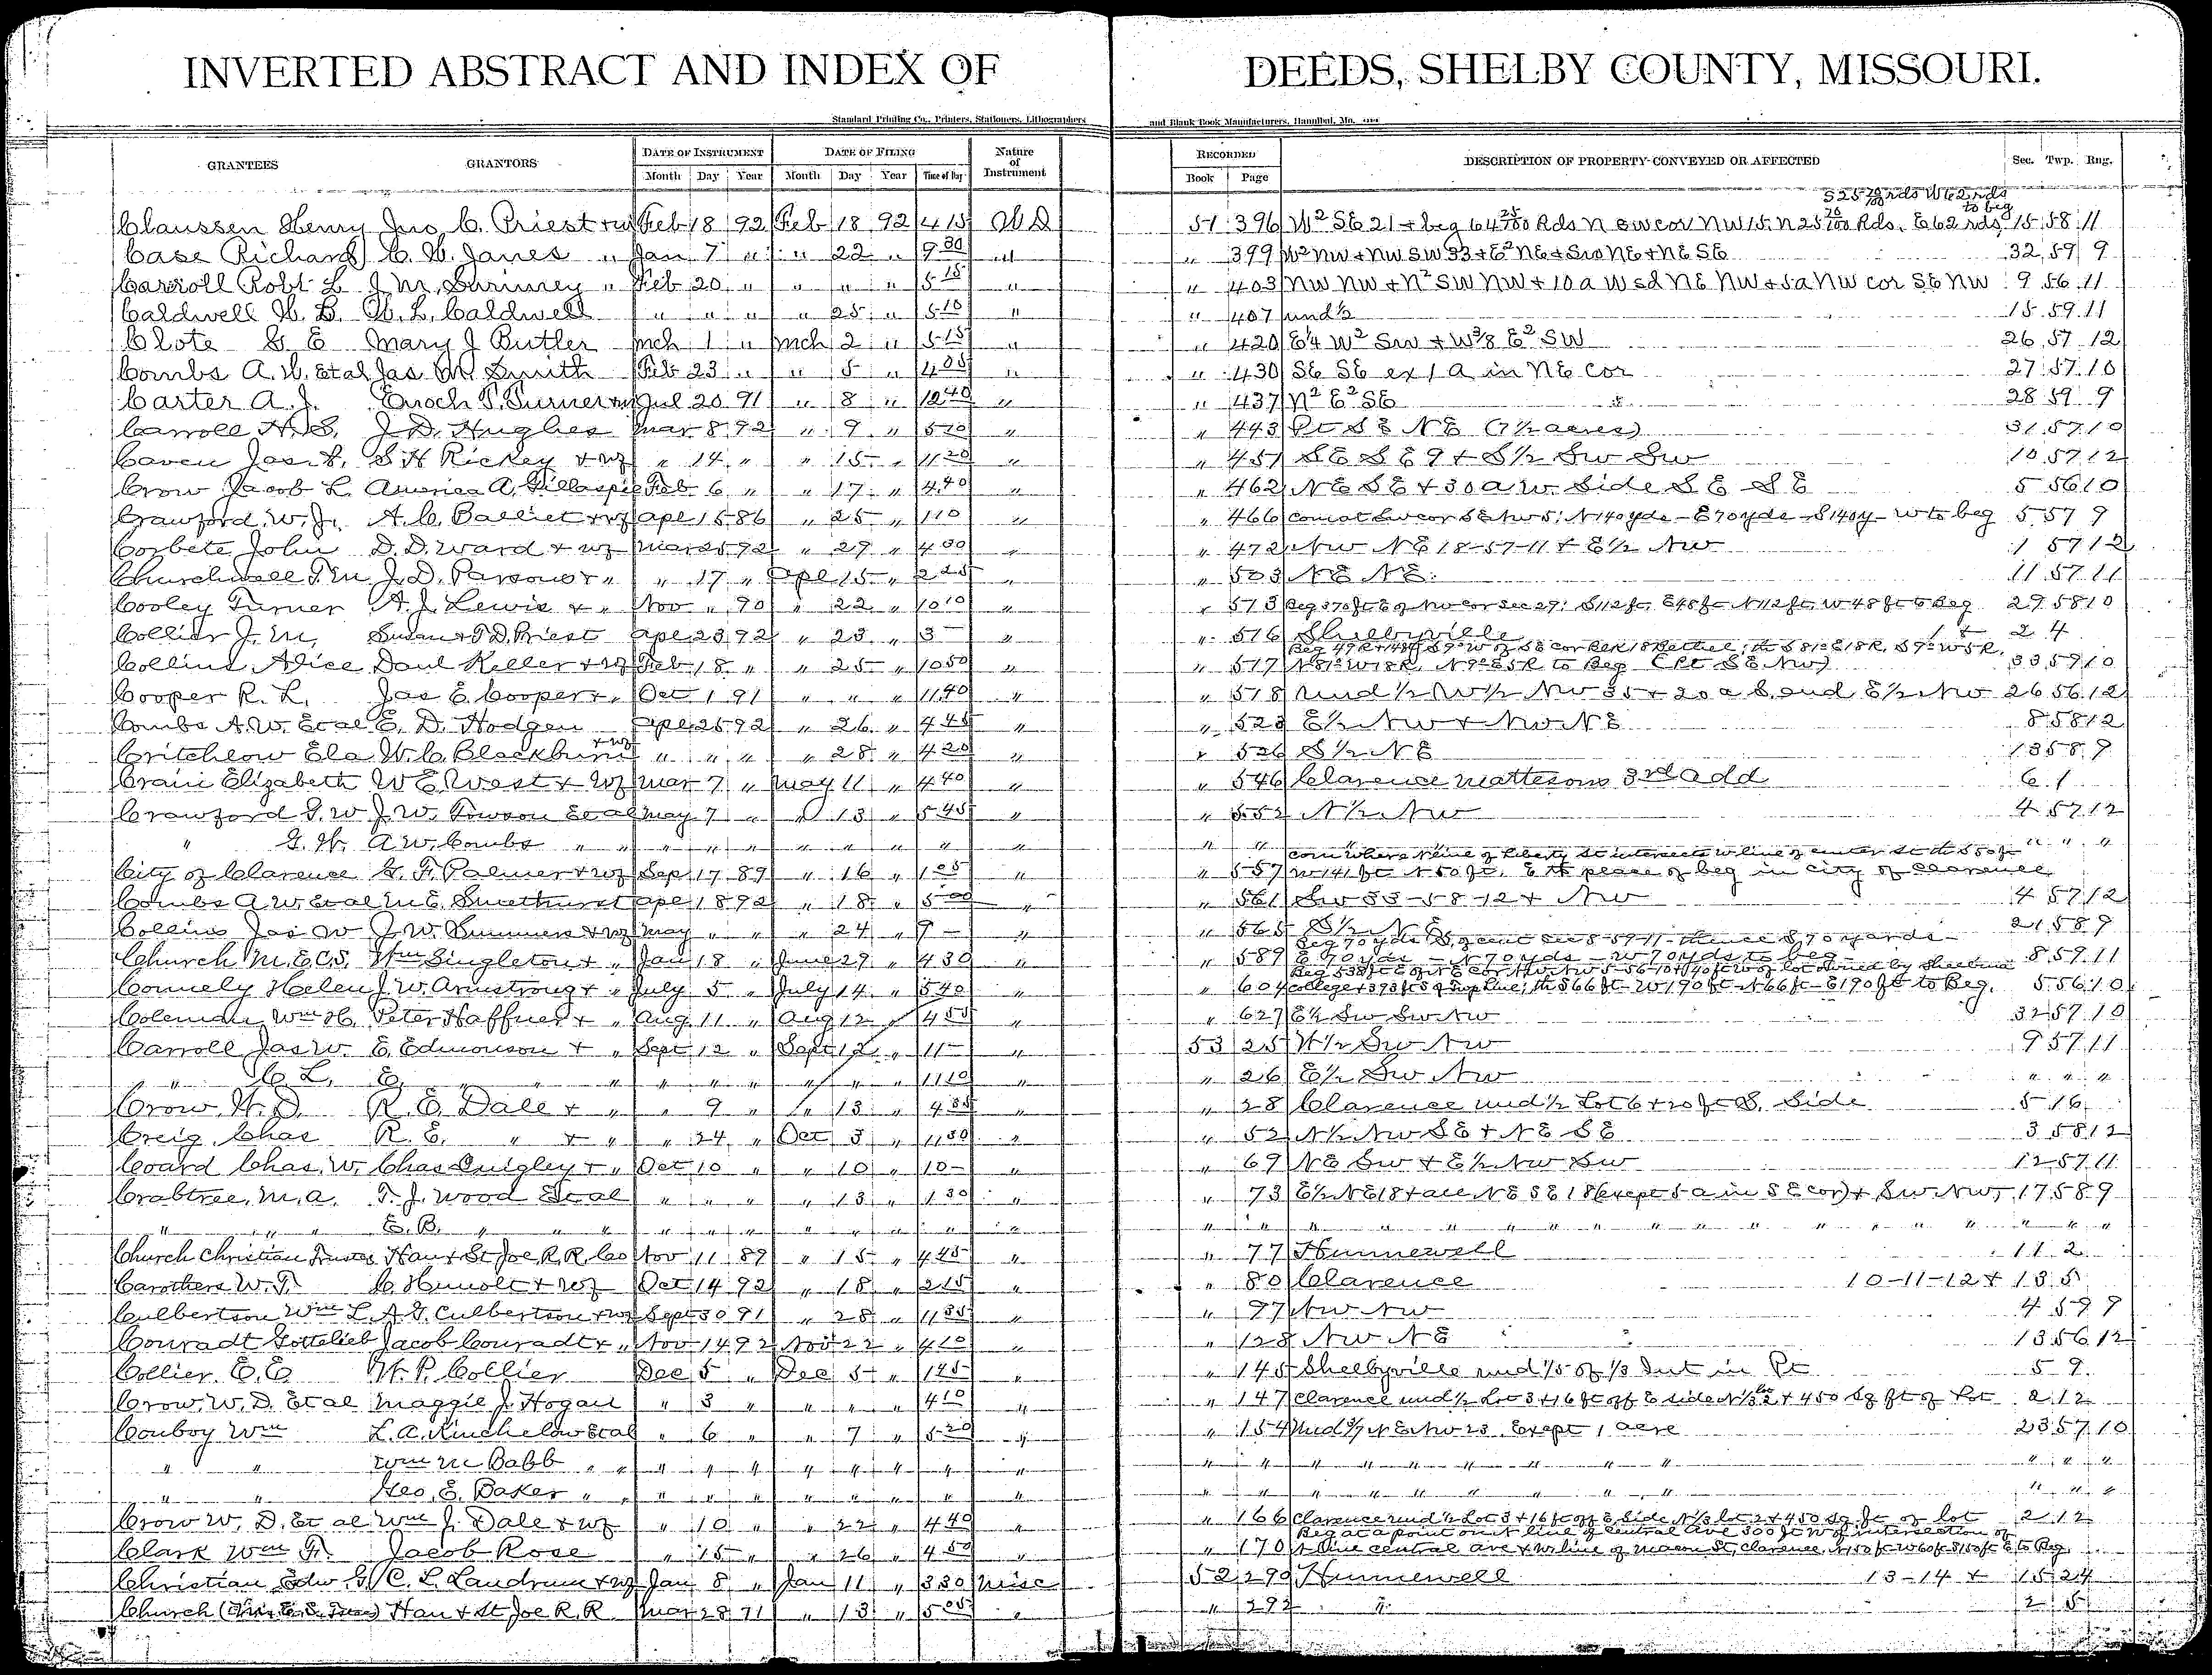 INVERTED ABSTRACT AND INDEX OF DEEDS, SHELBY COUNTY, MISSOURI.
Standard Printing Co., Printers, Stationers, Lithographers and Blank Book Manufacturers, Hannibal, Mo.
GRANTEES GRANTORS DATE OF INSTRUMENT DATE OF FILING Nature of Instrument RECORDED DESCRIPTION OF PROPERTY CONVEYED OR AFFECTED Sec. Twp. Rng.
Month Day Year Month Day Year Time of Day Book Page
S 25 70/100 rds W 62 rds to beg
Claussen Henry Jno C. Priest + w Feb 18 92 Feb 18 92 4 15 W D 51 396 W² SE 21 + beg 64 25/100 Rds N SW cor NW 15. N 25 70/100 Rds. E 62 rds 15 58 11
Case Richard C. W. Janes " Jan 7 " " 22 " 9 30 " " 399 W² NW + NW SW 33 + E² NE + SW NE + NE SE 32 59 9
Carroll Robt L J M. " Feb 20 " " " " 5 15 " " 403 NW NW + N² SW NW + 10 a W sd NE NW + 5a NW cor SE NW 9 56 11
Caldwell H. L. Caldwell " " " " 25 " 5 10 " " 407 und ½ 15 59 11
Clote G E Mary J Butler Mch 1 " Mch 2 " 5 15 " " 420 E¼ W² SW + W⅜ E² SW 26 57 12
Combs A. W. et al Jas M. Smith Feb 23 " " 5 " 4 05 " " 430 SE SE ex 1 a in NE cor 27 57 10
Carter A. J. Enoch T. Turner + w Jul 20 91 " 8 " 12 40 " " 437 N² E² SE 28 59 9
Carroll H. S. J. D. Hughes Mar 8 92 " 9 " 5 20 " " 443 Pt S E N E (7½ acres) 31 57 10
Caven Jas. S. S H Rickey + wf " 14 " " 15 " 11 20 " " 451 S E S E 9 + S ½ Sw Sw 10 57 12
Crow Jacob L. America A. Gillaspie Feb 6 " " 17 " 4 40 " " 462 N E S E + 30 a W. Side S E S E 5 56 10
Crawford W. J. A. C. Balliet + wf Apl 15 86 " 25 " 1 10 " " 466 com at Sw cor SE Nw 5; N 140 yds - E 70 yds - S 140 y - W to beg 5 57 9
Corbete John D. D. Ward + wf Mar 25 92 " 29 " 4 00 " " 472 Nw N E 18-57-11 + E ½ Nw 1 57 12
Churchwell T. M. J. D. Parsons + " " 17 " Apl 15 " 2 25 " " 503 N E N E 11 57 11
Cooley Turner A. J. Lewis + " Nov " 90 " 22 " 10 10 " " 513 Beg 370 ft E of Nw cor sec 29; S 112 ft, E 48 ft N 112 ft, W 48 ft to Beg 29 58 10
Collier J. M. Susan + T. D. Priest Apl 23 92 " 23 " 3 - " " 516 Shelbyville 1 + 2 4
Collins Alice Danl Keller + wf Feb 18 " " 25 " 10 50 " " 517 N 81° W 18 R. N 9° E 5 R to Beg (Pt S E Nw) 33 59 10
Cooper R. L. Jas E. Cooper + " Oct 1 91 " " " 11 40 " " 518 Und ½ W ½ Nw 35 + 20 a S. end E ½ Nw 26 56 12
Combs A. W. Et al E. D. Hodgen Apl 25 92 " 26 " 4 45 " " 523 E ½ Nw + Nw N E 8 58 12
Critchlow Ela W. C. Blackburn + wf " " " " 28 " 4 20 " " 526 S ½ N E 13 58 9
Crain Elizabeth W E West + wf Mar 7 " May 11 " 4 40 " " 546 Clarence Mattesons 3rd Add 6 1
Crawford G. W J. W. Towson Et al May 7 " " 13 " 5 45 " " 552 N ½ Nw 4 57 12
" G. W. A. W. Combs " " " " " " " " " " " " " " " "
com where N line of Liberty St intersects W line of center St th S 50 ft
City of Clarence G. F. Palmer + wf Sep 17 89 " 16 " 1 05 " " 557 W 141 ft N 50 ft, E to place of beg in city of Clarence
Combs A W et al M. E. Smethurst Apl 18 92 " 18 " 5 00 " " 561 Sw 33-58-12 + Nw 4 57 12
Collins Jas W J. W. Summers + wf May " " " 24 " 9 - " " 565 S ½ N E 21 58 9
Church M. E. C. S. Wm Singleton + " Jan 18 " June 29 " 4 30 " " 589 E 70 yds - N 70 yds - W 70 yds to beg 8 59 11
Connely Helen J. W. Armstrong + " July 5 " July 14 " 5 40 " " 604 College + 393 ft S of Twp line; th S 66 ft - W 190 ft - N 66 ft - E 190 ft to Beg. 5 56 10
Coleman Wm H. Peter Haffner + " Aug 11 " Aug 12 " 4 55 " " 627 E ½ Sw Sw Nw 32 57 10
Carroll Jas W. E. Edmonson + " Sept 12 " Sept 12 " 11 - " 53 25 W ½ Sw Nw 9 57 11
" C. L. E. " " " " " " " " 11 10 " " 26 E ½ Sw Nw " " "
Crow, W. D. R. E. Dale + " " 9 " " 13 " 4 35 " " 28 Clarence und ½ Lot 6 + 20 ft S. Side 5 16
Creig Chas R. E. " + " " 24 " Oct 3 " 1 30 " " 52 N ½ Nw S E + N E S E 3 58 12
Coard Chas. W. Chas Quigley + " Oct 10 " " 10 " 10 - " " 69 N E Sw + E ½ Nw Sw 12 57 11
Crabtree, M. A. T. J. Wood Et al " " " " 13 " 1 30 " " 73 E ½ N E 18 + all N E S E 18 (Except 5 a in S E cor) + Sw Nw, 17 58 9
" " " E. B. " " " " " " " " " " " " " " " " "
Church Christian Trustes Han + St Joe R. R. Co Nov 11 89 " 15 " 4 45 " " 77 Hunnewell 11 2
Carothers W. T. C. Hunolt + wf Oct 14 92 " 18 " 2 15 " " 80 Clarence 10-11-12 + 13 5
Culbertson Wm L. A. T. Culbertson + wf Sept 30 91 " 28 " 11 35 " " 97 Nw Nw 4 59 9
Conradt Gottelieb Jacob Conradt + " Nov 14 92 Nov 22 " 4 10 " " 128 Nw N E 13 56 12
Collier. E. E. W. P. Collier Dec 5 " Dec 5 " 1 25 " " 145 Shelbyville und 1/5 of 1/3 Int in Pt 5 9
Crow. W. D. Et al Maggie J. Hogan " 3 " " " " 4 10 " " 147 Clarence und ½ Lot 3 + 16 ft off E side N ⅓ lot 2 + 450 Sq ft of Lot 2 12
Conboy Wm L. A. Kincheloe et al " 6 " " 7 " 5 20 " " 154 Und 3/7 N E Nw 23. Except 1 acre 23 57 10
" " Wm M Babb " " " " " " " " " " " " " " " "
" " Geo. E. Baker " " " " " " " " " " " " " " " "
Crow W. D. Et al Wm J. Dale + wf " 10 " " 22 " 4 40 " " 166 Clarence und ½ Lot 3 + 16 ft off E Side N ⅓ lot 2 + 450 Sq. ft of lot 2 12
Beg at a point on N line of Central Ave 300 ft W of intersection of
Clark Wm F. Jacob Rose " 15 " " 26 " 4 50 " " 170 N line central ave + W line of Macon St, Clarence, N 150 ft W 60 ft S 150 ft E to Beg.
Christian Edw. G. C. L. Landrum + wf Jan 8 " Jan 11 " 3 30 Misc 52 290 Hunnewell 13-14 + 15 24
Church Han + St Joe R. R Mar 28 71 " 13 " 5 05 " " 292 " 2 5